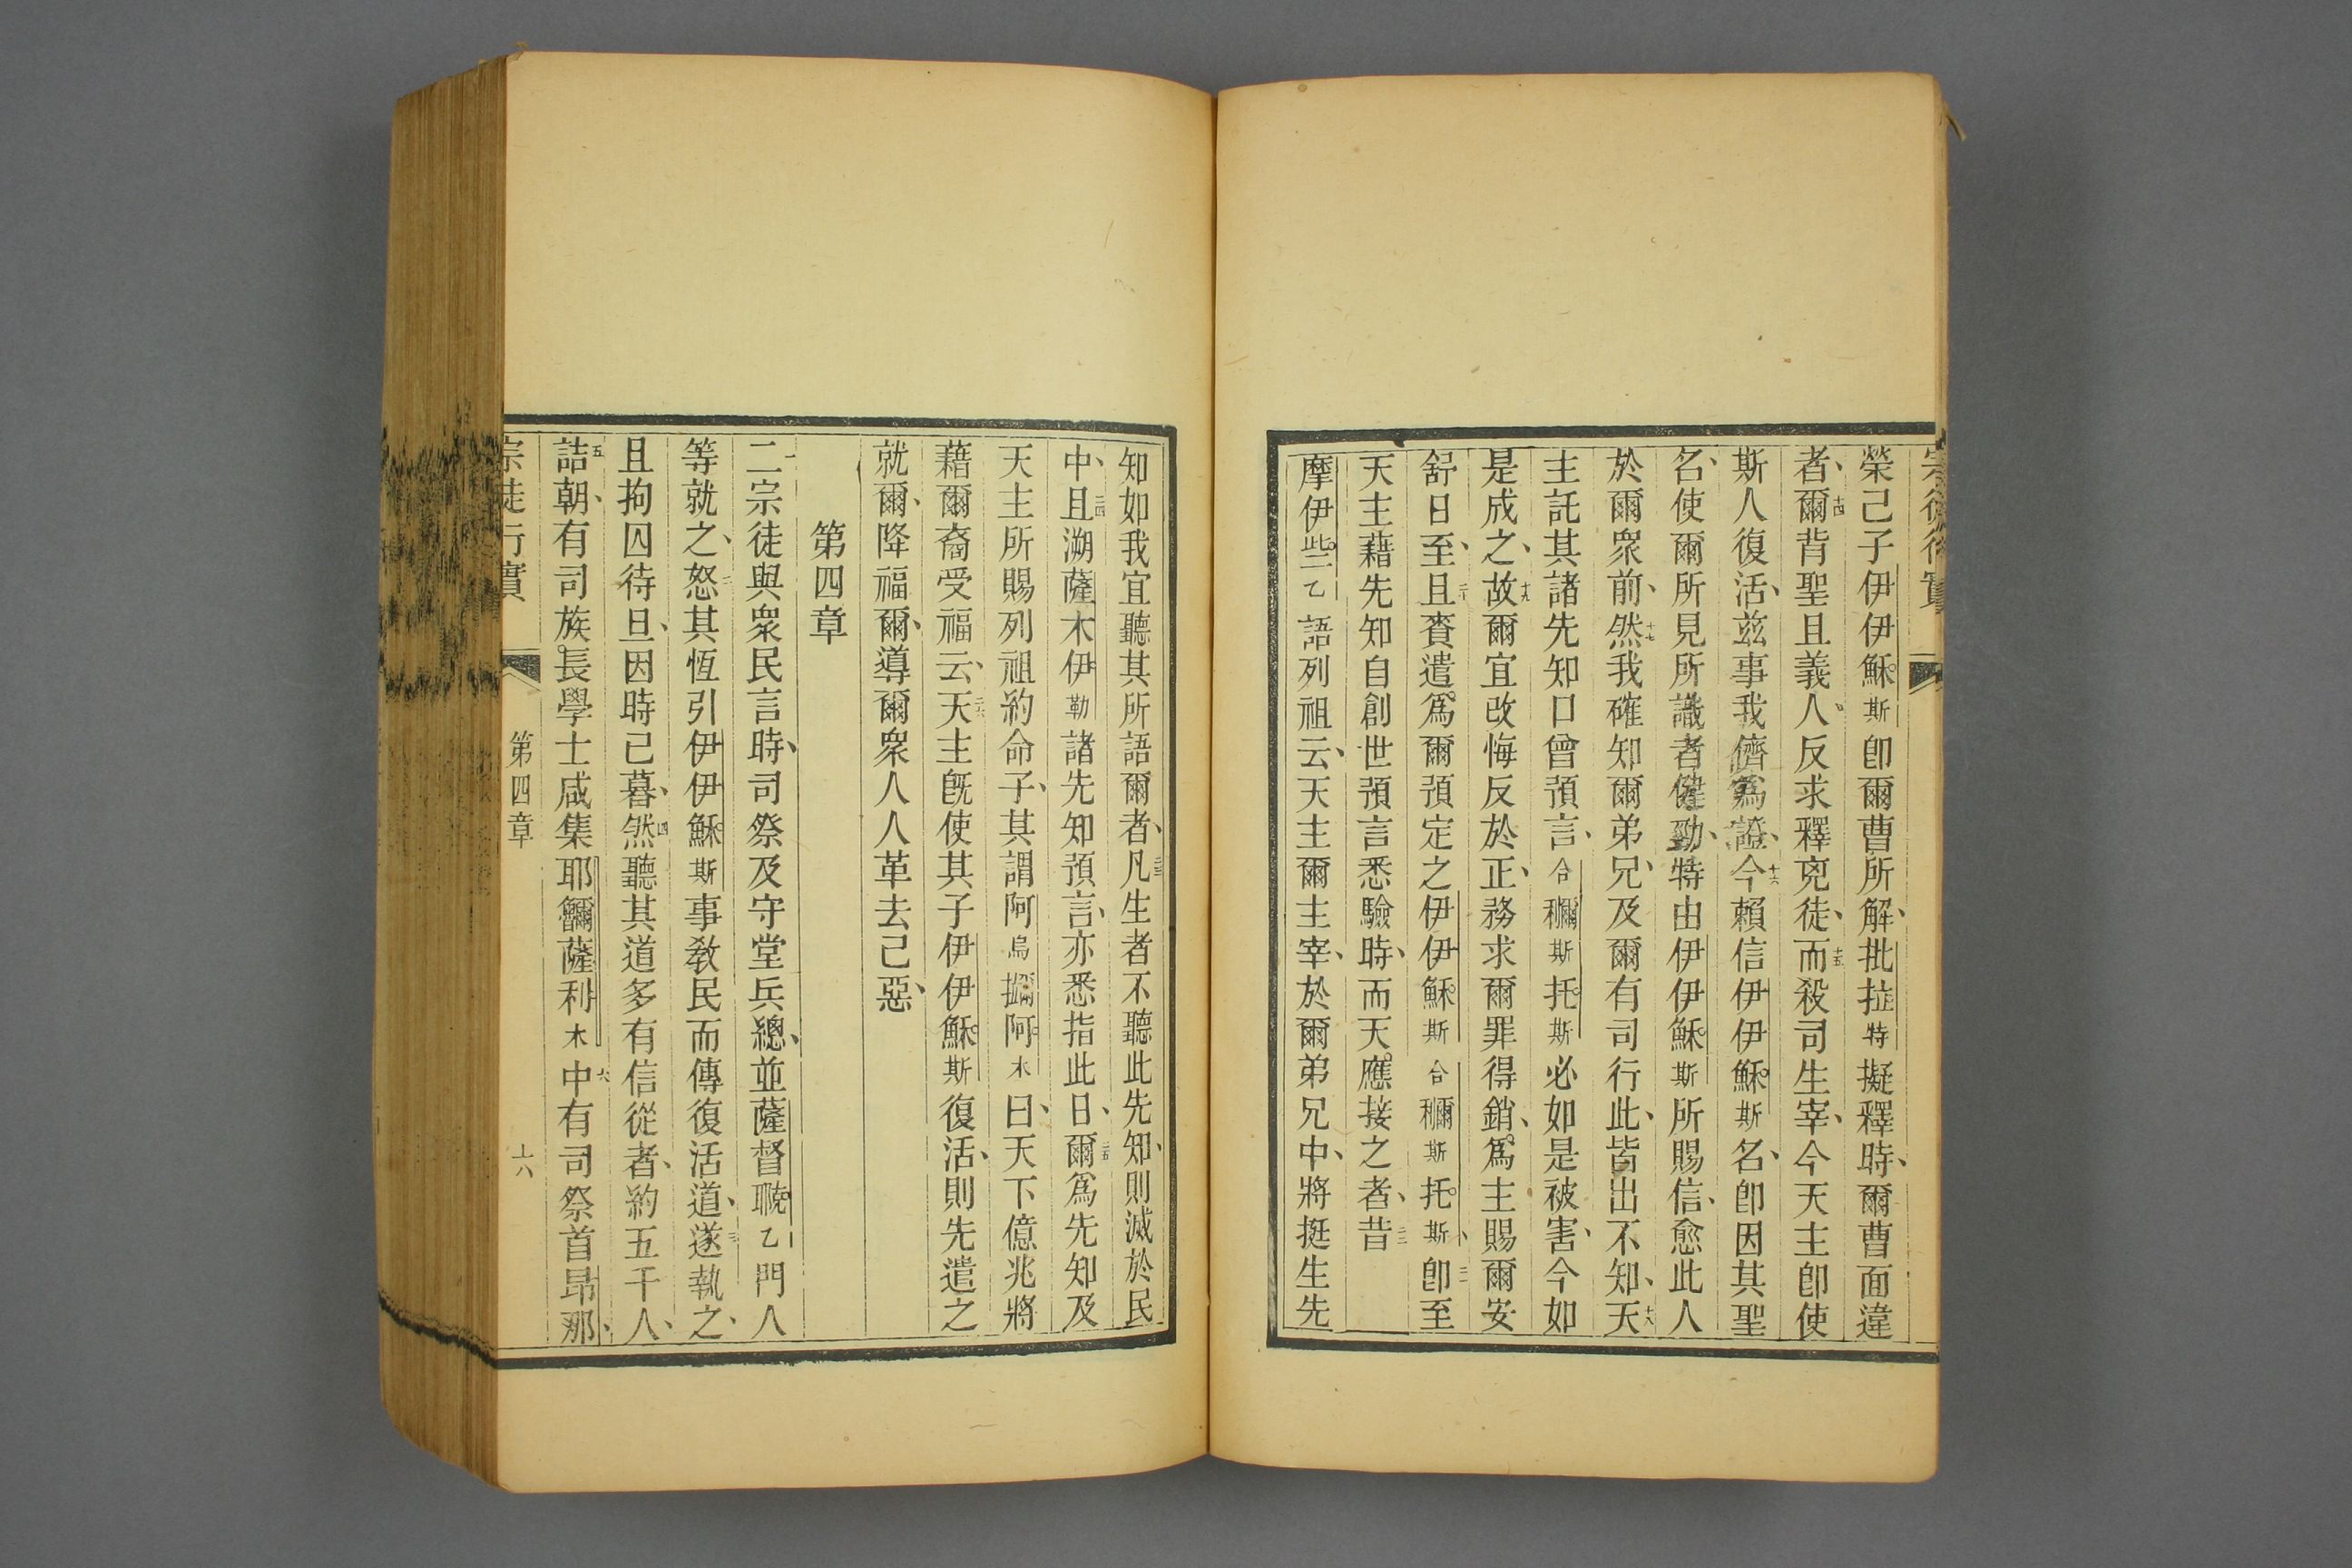 宗徒行實
榮己子伊伊穌斯卽爾曹所解、批拉特擬釋時、爾曹面違
者、十四爾背聖且義人、反求釋兇徒、十五而殺司生宰、今天主卽使
斯人復活、玆事我儕爲證、十六今賴信伊伊穌斯名、卽因其聖
名、使爾所見所識者健勁、特由伊伊穌斯所賜信、愈此人
於爾衆前、十七然我確知爾弟兄、及爾有司行此、皆出不知、十八天
主託其諸先知口曾預言、合穪斯托斯必如是被害、今如
是成之、十九故爾宜改悔反於正、務求爾罪得銷、爲主賜爾安
舒日至、二十且賚遣爲爾預定之伊伊穌斯合穪斯托斯、二一卽至
天主藉先知自創世預言悉驗時、而天應接之者、二二昔
摩伊些乙語列祖云、天主爾主宰、於爾弟兄中、將挺生先
知如我宜聽其所語爾者、二三凡生者不聽此先知、則滅於民
中、二四且溯薩木伊勒諸先知預言、亦悉指此日、二五爾爲先知及
天主所賜列祖約命子、其謂阿烏擟阿木曰、天下億兆將
藉爾裔受福云、二六天主旣使其子伊伊穌斯復活、則先遣之
就爾、降福爾、導爾衆人人革去己惡、
第四章
一二宗徒與衆民言時、司祭及守堂兵總、並薩督聭乙門人
等就之、二怒其恆引伊伊穌斯事敎民而傳復活道、三遂執之、
且拘囚待旦、因時已暮、四然聽其道多有信從者、約五千人、
五詰朝、有司族長學士咸集耶䚿薩利木、六中有司祭首昻那、
宗徒行實
第四章
六